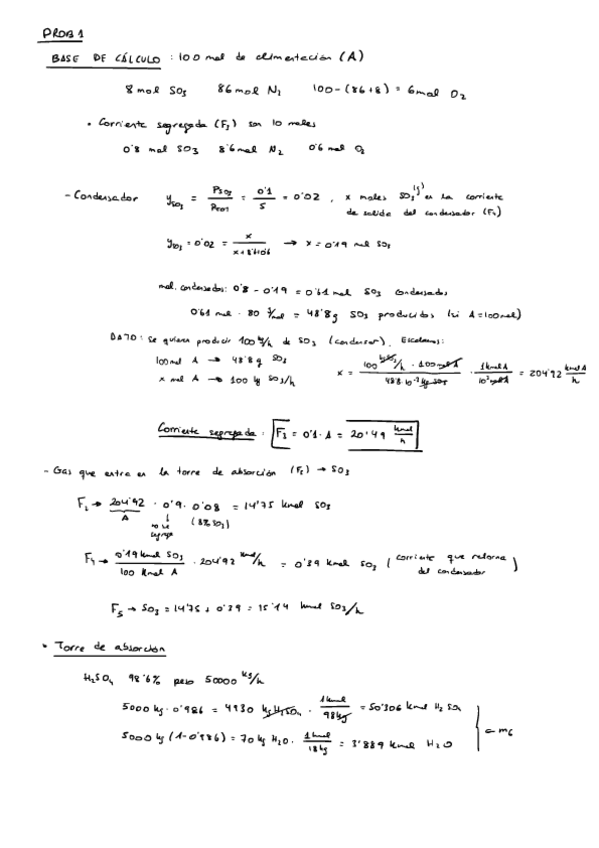 PROB 1
BASE DE CÁLCULO : 100 mol de alimentación (A)
8 mol SO3 86 mol N2 100-(86+8) = 6 mol O2
• Corriente segregada (F3) son 10 moles
0'8 mol SO3 8'6 mol N2 0'6 mol O2
- Condensador ySO3 = PSO3 / PTOT = 0'1 / 5 = 0'02 , x moles SO3 (g) en la corriente
de salida del condensador (F4)
ySO3 = 0'02 = x / x+8'6+0'6 → x = 0'19 mol SO3
mol condensados: 0'8 - 0'19 = 0'61 mol SO3 condensados
0'61 mol · 80 g/mol = 48'8 g SO3 producidos (si A=100mol)
DATO: Se quieren producir 100 kg/h de SO3 (condensar). Escalamos:
100 mol A → 48'8 g SO3
x mol A → 100 kg SO3/h
x = 100 kg SO3/h · 100 mol A / 48'8·10^-3 kg SO3 · 1 kmol A / 10^3 mol A = 204'92 kmol A / h
Corriente segregada : F3 = 0'1·A = 20'49 kmol/h
- Gas que entra en la torre de absorción (F5) → SO3
F2 → 204'92 · 0'9 · 0'08 = 14'75 kmol SO3
A no se segrega (8% SO3)
F4 → 0'19 kmol SO3 / 100 kmol A · 204'92 kmol/h = 0'39 kmol SO3 (corriente que retorna del condensador)
F5 → SO3 = 14'75 + 0'39 = 15'14 kmol SO3/h
• Torre de absorción
H2SO4 98'6% peso 50000 kg/h
5000 kg · 0'986 = 4930 kg H2SO4 · 1 kmol / 98 kg = 50'306 kmol H2SO4
5000 kg (1-0'986) = 70 kg H2O · 1 kmol / 18 kg = 3'889 kmol H2O
= m6